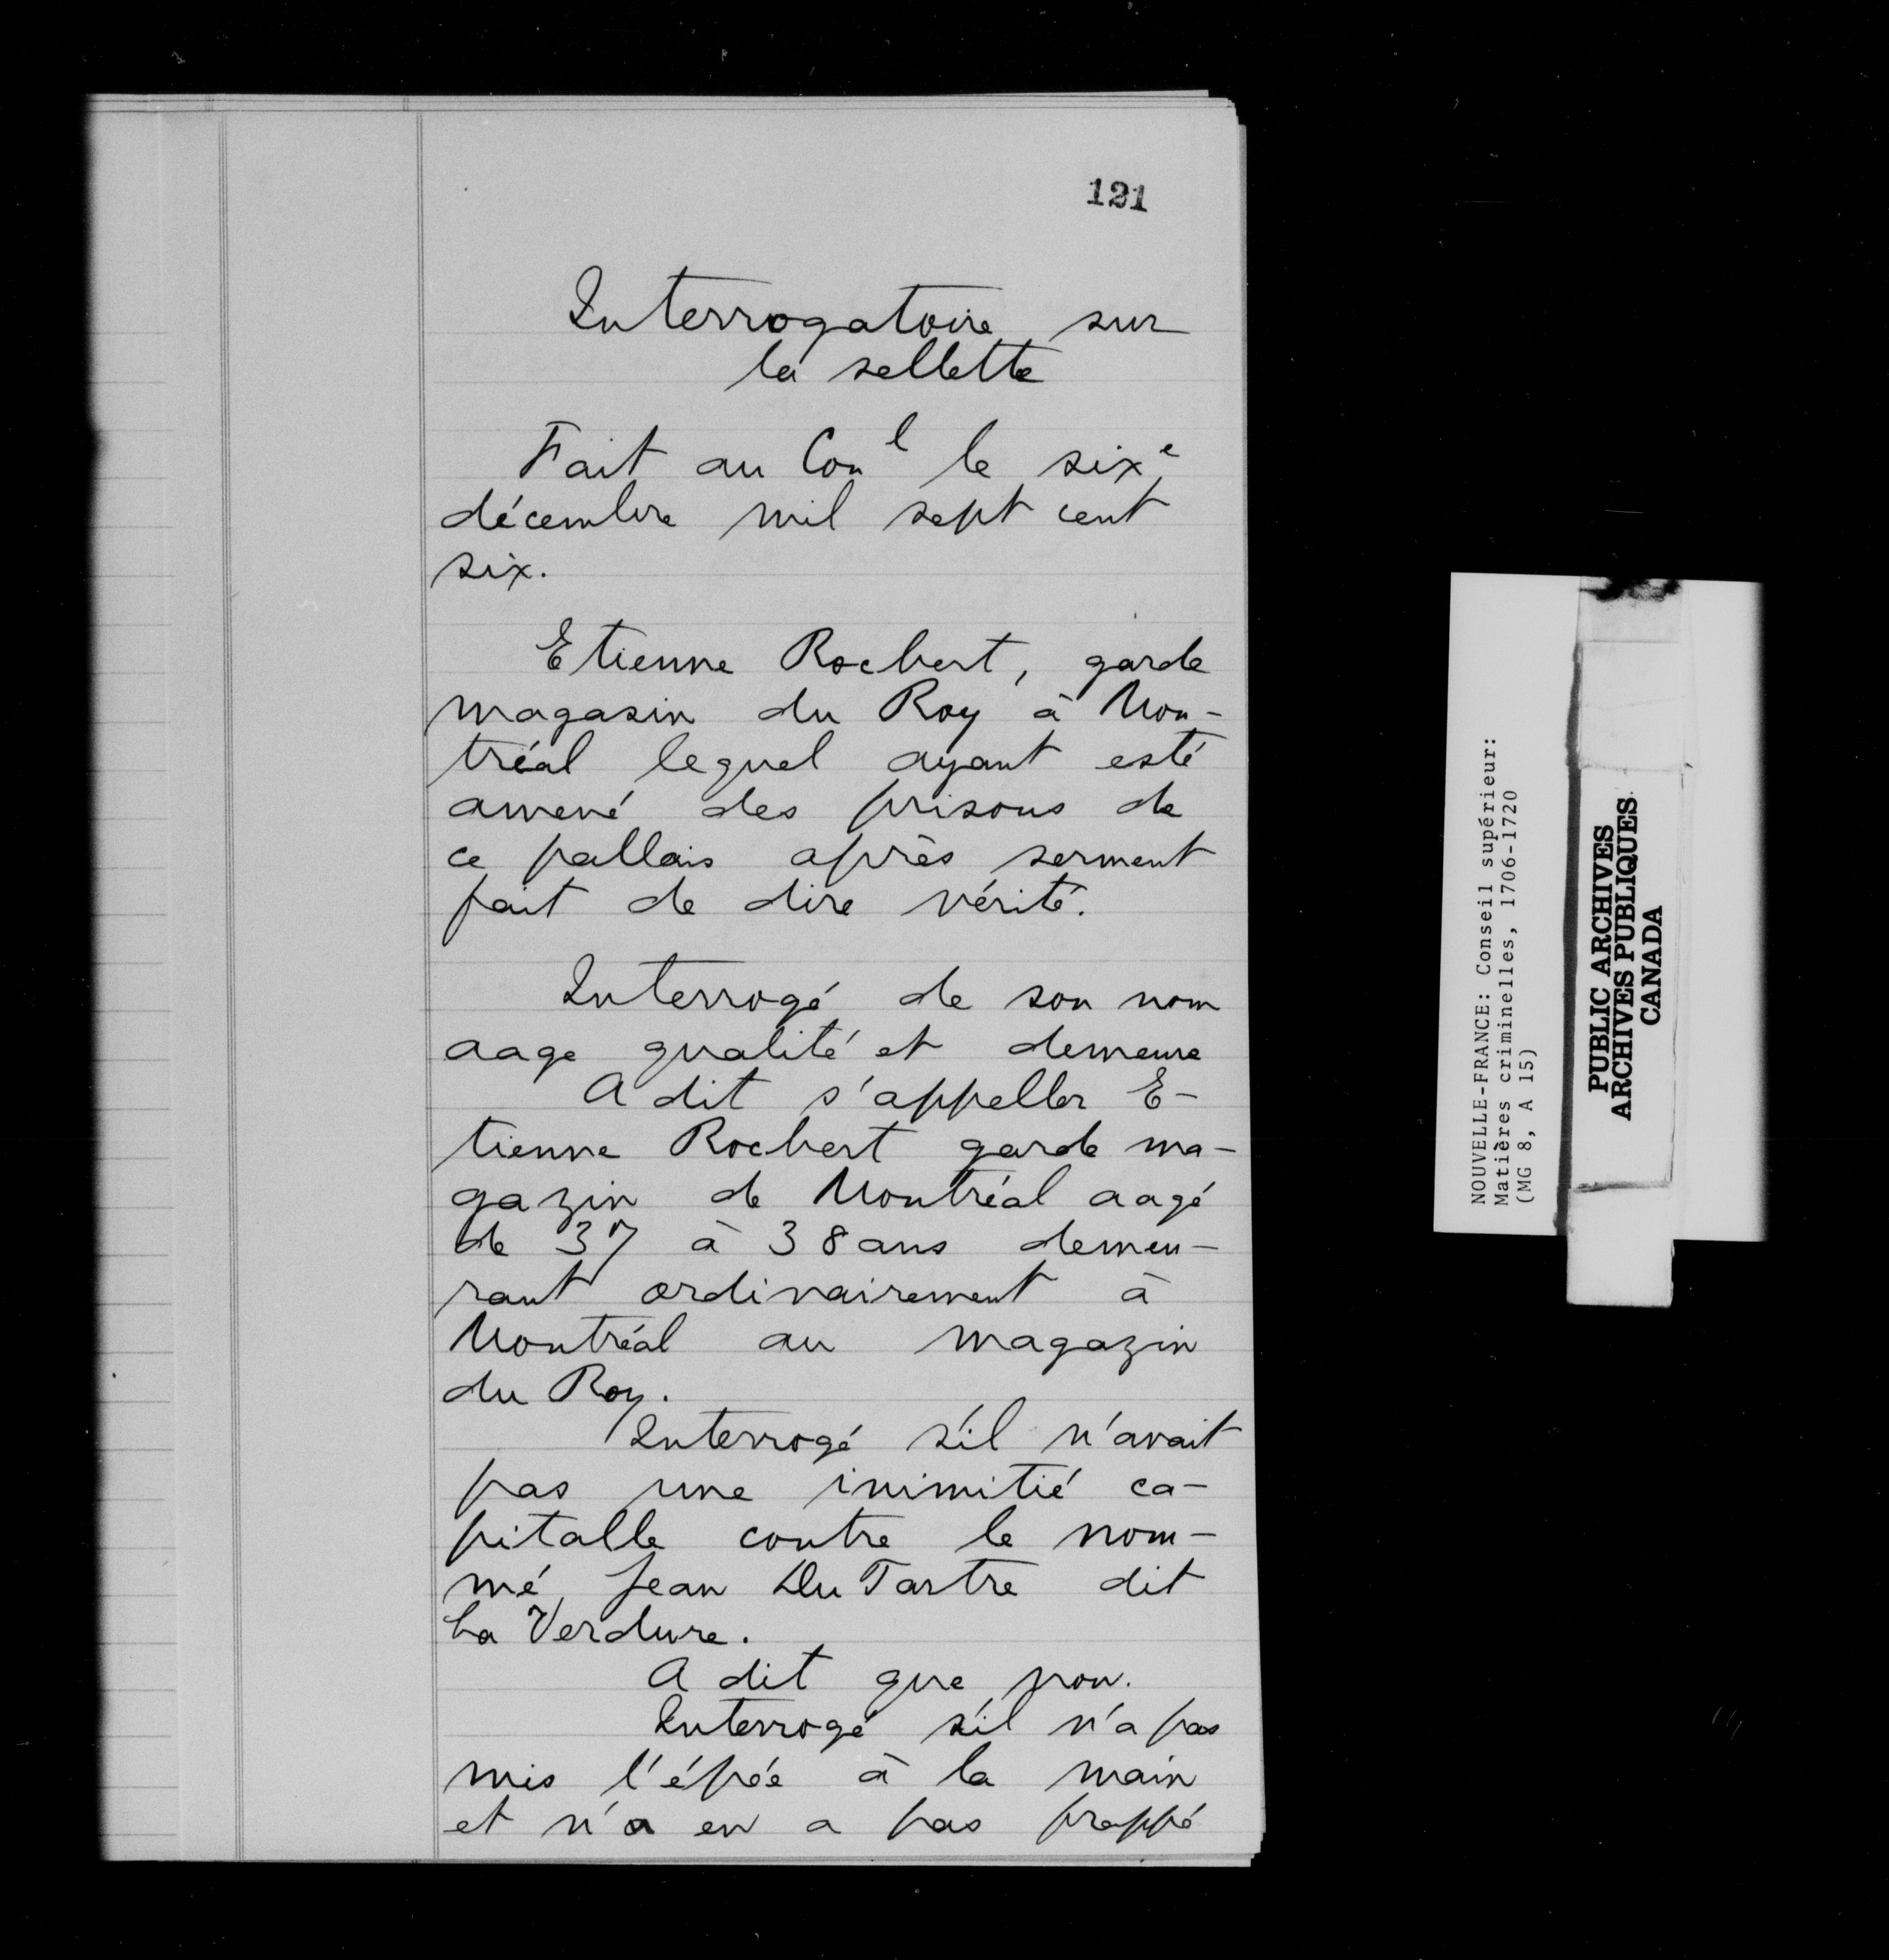 121
Interrogatoire sur
la sellette
Fait au Con^l le six^e
décembre mil sept cent
six.
Etienne Rocbert, garde
magasin du Roy à Mon-
tréal lequel ayant esté
amené des prisons de
ce pallais après serment
fait de dire vérité.
Interrogé de son nom
aage qualité et demeure
A dit s'appeller E-
tienne Rocbert garde ma-
gazin de Montréal aagé
de 37 à 38 ans demeu-
rant ordinairement à
Montréal au magazin
du Roy.
Interrogé s'il n'avait
pas une inimitié ca-
pitalle contre le nom-
mé Jean Du Tartre dit
La Verdure.
A dit que non.
Interrogé s'il n'a pas
mis l'épée à la main
et n'a en a pas frappé
NOUVELLE-FRANCE: Conseil supérieur:
Matières criminelles, 1706-1720
(MG 8, A 15)
PUBLIC ARCHIVES
ARCHIVES PUBLIQUES
CANADA